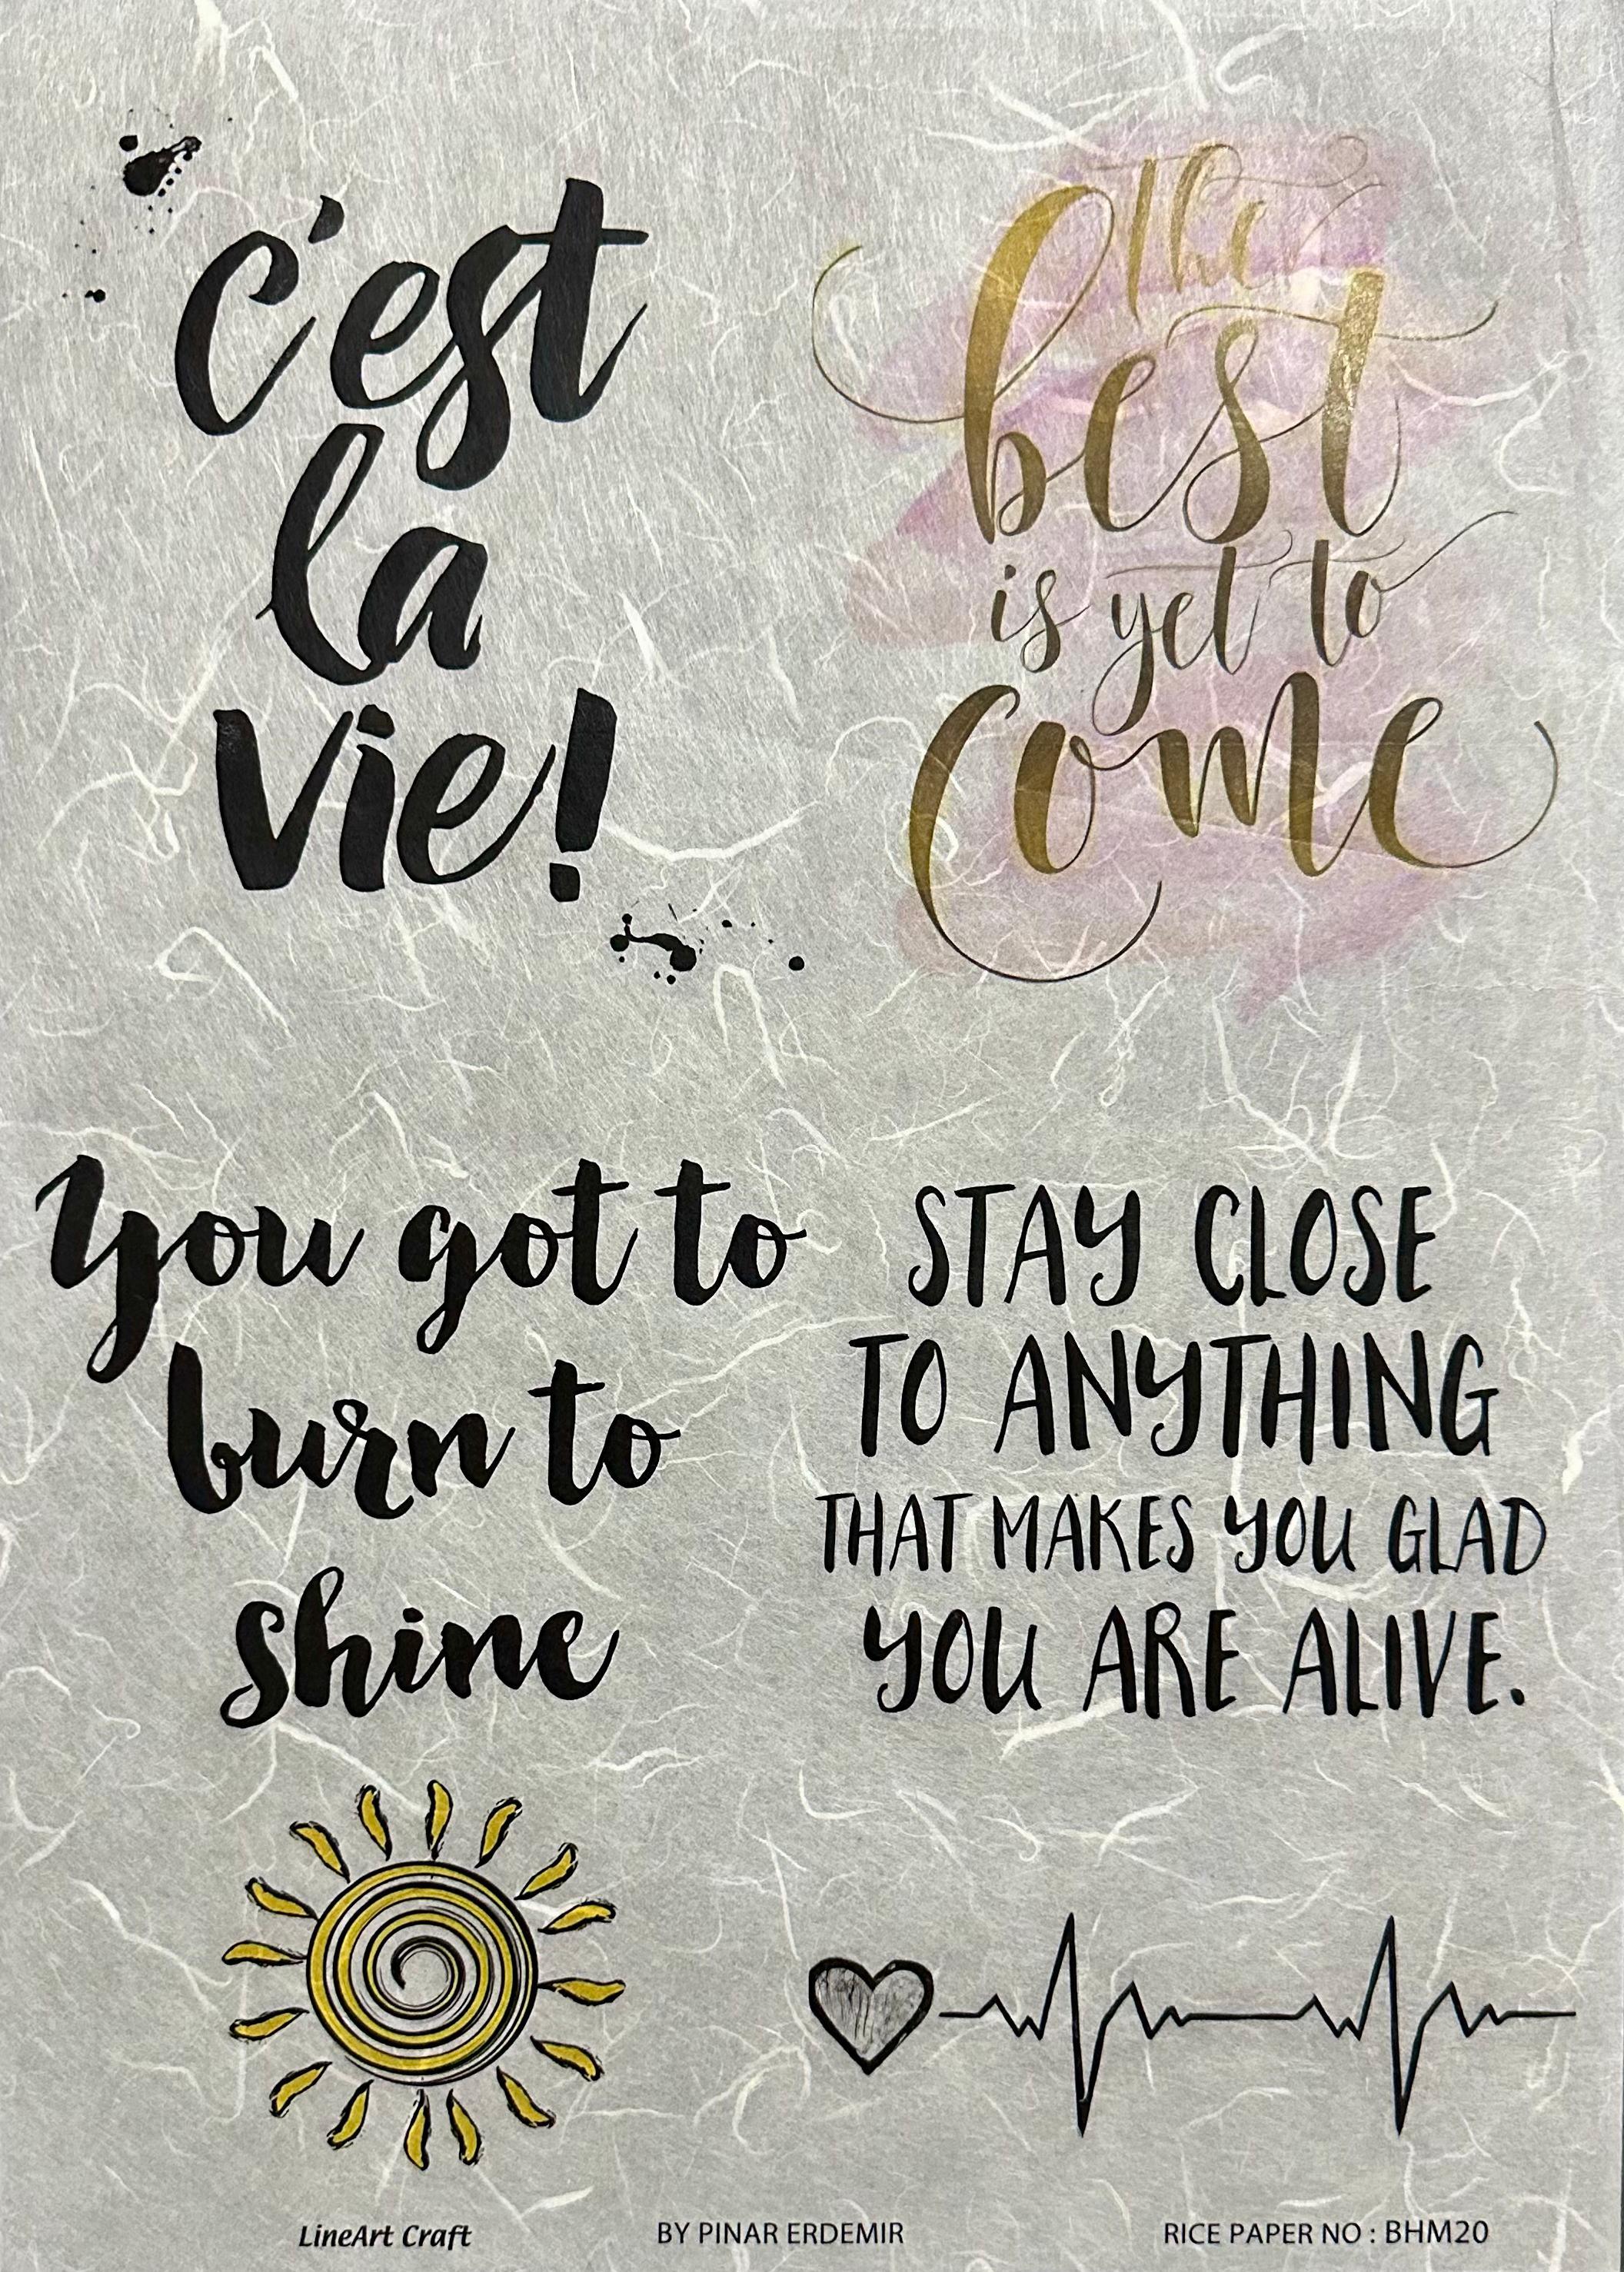 c'est
la
vie!
the
best
is yet to
come
You got to
burn to
shine
STAY CLOSE
TO ANYTHING
THAT MAKES YOU GLAD
YOU ARE ALIVE.
LineArt Craft
BY PINAR ERDEMIR
RICE PAPER NO : BHM20